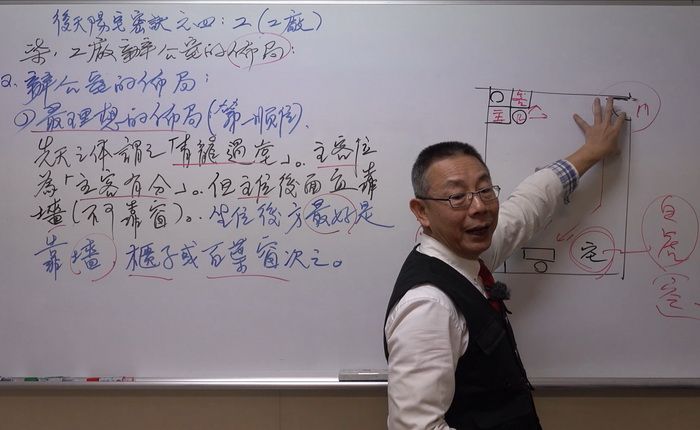 後天陽宅密訣之四:工(工廠)
柒,工廠辦公室的佈局:
2.辦公室的佈局:
①最理想的佈局(第一順位).
先天之体謂之「青龍過堂」。主客位
為「主客有分」。但主位後面宜靠
墻(不可靠窗)。坐位後方最好是
靠墻,櫃子或百葉窗次之。
主
門
宅
白
虎